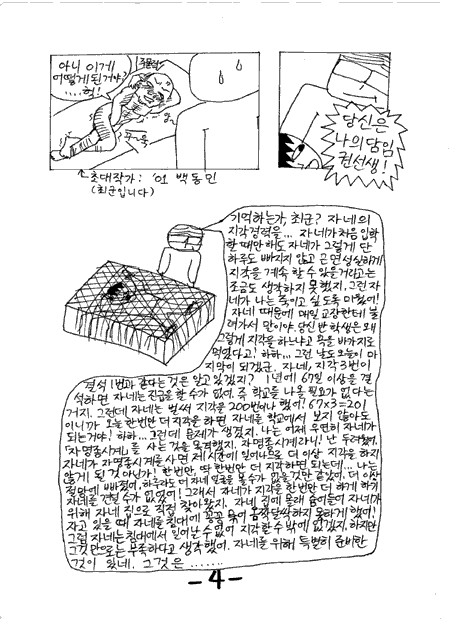 아니 이게
어떻게된거야?
....헉!
당신은
나의담임
권선생!
↑초대작가: '01 백동민
(최군입니다)
기억하는가, 최군? 자네의
지각경력을... 자네가처음입학
할때만해도 자네가 그렇게 단
하루도 빠지지 않고 근면성실하게
지각을 계속 할 수 있을거라고는
조금도 생각하지 못했지. 그런 자
네가 나는 죽이고 싶도록 미웠어!
자네 때문에 매일 교장한테 불
려가서 말이야. 당신 반 학생은 왜
그렇게 지각을 하느냐고 욕을 바가지로
먹었다고! 하하... 그런 날도 오늘이 마
지막이 되겠군. 자네, 지각 3번이
결석 1번과 같다는것은 알고 있겠지? 1년에 67일 이상을 결
석하면 자네는 진급을 할 수가 없어. 즉 학교를 나올 필요가 없다는
거지. 그런데 자네는 벌써 지각을 200번이나 했어! 67x3=201
이니까 오늘 한번만 더 지각을 하면 자네를 학교에서 보지 않아도
되는거야! 하하...그런데 문제가 생겼지. 나는 어제 우연히 자네가
'자명종시계'를 사는것을 목격했지. 자명종시계라니! 난 두려웠지.
자네가 자명종시계를 사면 제시간에 일어나므로 더 이상 지각을 하지
않게 될 것 아닌가! 한번만, 딱 한번만 더 지각하면 되는데... 나는
절망에 빠졌어. 하루라도 더 자네 얼굴을 볼수가 없을것만 같았어. 더 이상
자네를 견딜 수가 없었어! 그래서 자네가 지각을 한번만 더 하게 하기
위해 자네 집으로 직접 찾아왔지. 자네 집에 몰래 숨어들어 자네가
자고 있을 때 자네를 침대에 꽁꽁 묶어 꼼짝달싹하지 못하게 했어!
그럼 자네는 침대에서 일어날수 없어 지각할수밖에 없겠지. 하지만
그것만으로는 부족하다고 생각했어. 자네를 위해 특별히 준비한
것이 있네. 그것은 .......
-4-